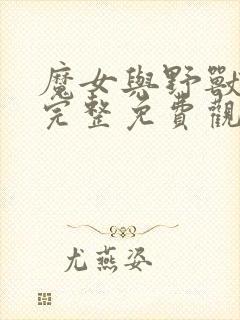 魔女與野獸
完整免費觀
尤燕姿